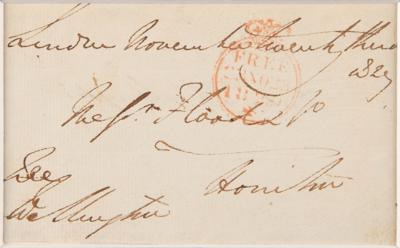 London November twenty third
1827
FREE
NO
18
Messrs Flood & Co
Honiton
Free
Wellington